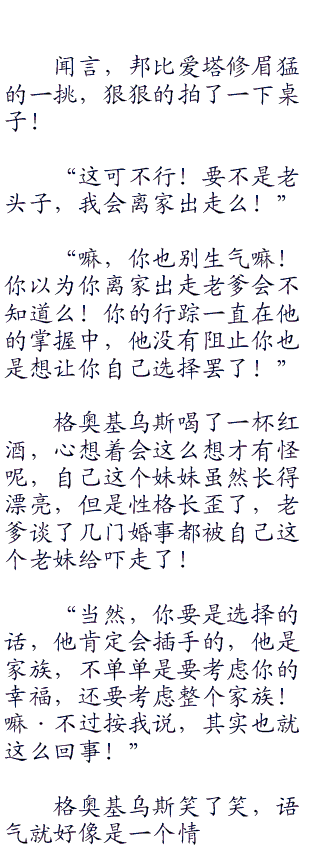 闻言，邦比爱塔修眉猛
的一挑，狠狠的拍了一下桌
子！
“这可不行！要不是老
头子，我会离家出走么！”
“嘛，你也别生气嘛！
你以为你离家出走老爹会不
知道么！你的行踪一直在他
的掌握中，他没有阻止你也
是想让你自己选择罢了！”
格奥基乌斯喝了一杯红
酒，心想着会这么想才有怪
呢，自己这个妹妹虽然长得
漂亮，但是性格长歪了，老
爹谈了几门婚事都被自己这
个老妹给吓走了！
“当然，你要是选择的
话，他肯定会插手的，他是
家族，不单单是要考虑你的
幸福，还要考虑整个家族！
嘛·不过按我说，其实也就
这么回事！”
格奥基乌斯笑了笑，语
气就好像是一个情